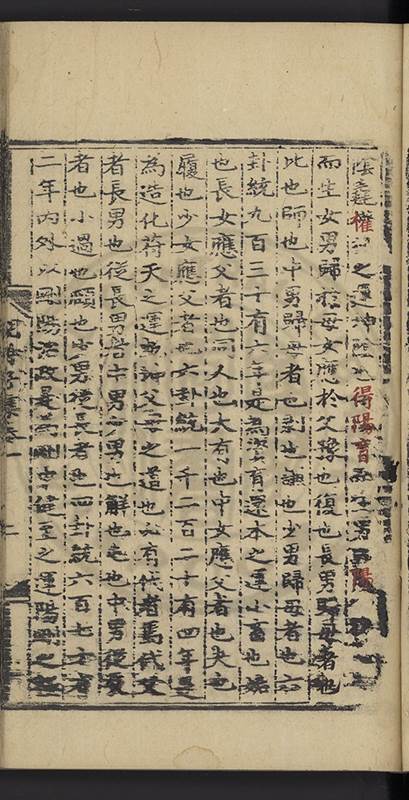 陰㐫權之運坤陰得陽育而生男陽
而生女男歸於母女應於父豫也復也長男歸母者也
比也師也中男歸母者也剥也謙也少男歸母者也六
卦統九百三十有六年是為資育還本之運小畜也姤
也長女應父者也同人也大有也中女應父者也夬也
履也少女應父者也六卦統一千二百二十有四年是
為造化符天之運如父母之道也必有代者焉代父
者長男也從長男者中男少男也解也屯也中男從長
者也小過也頤也少男從長者也四卦統六百七十有
二年內外以剛陽治政是為剛中健至之運陽